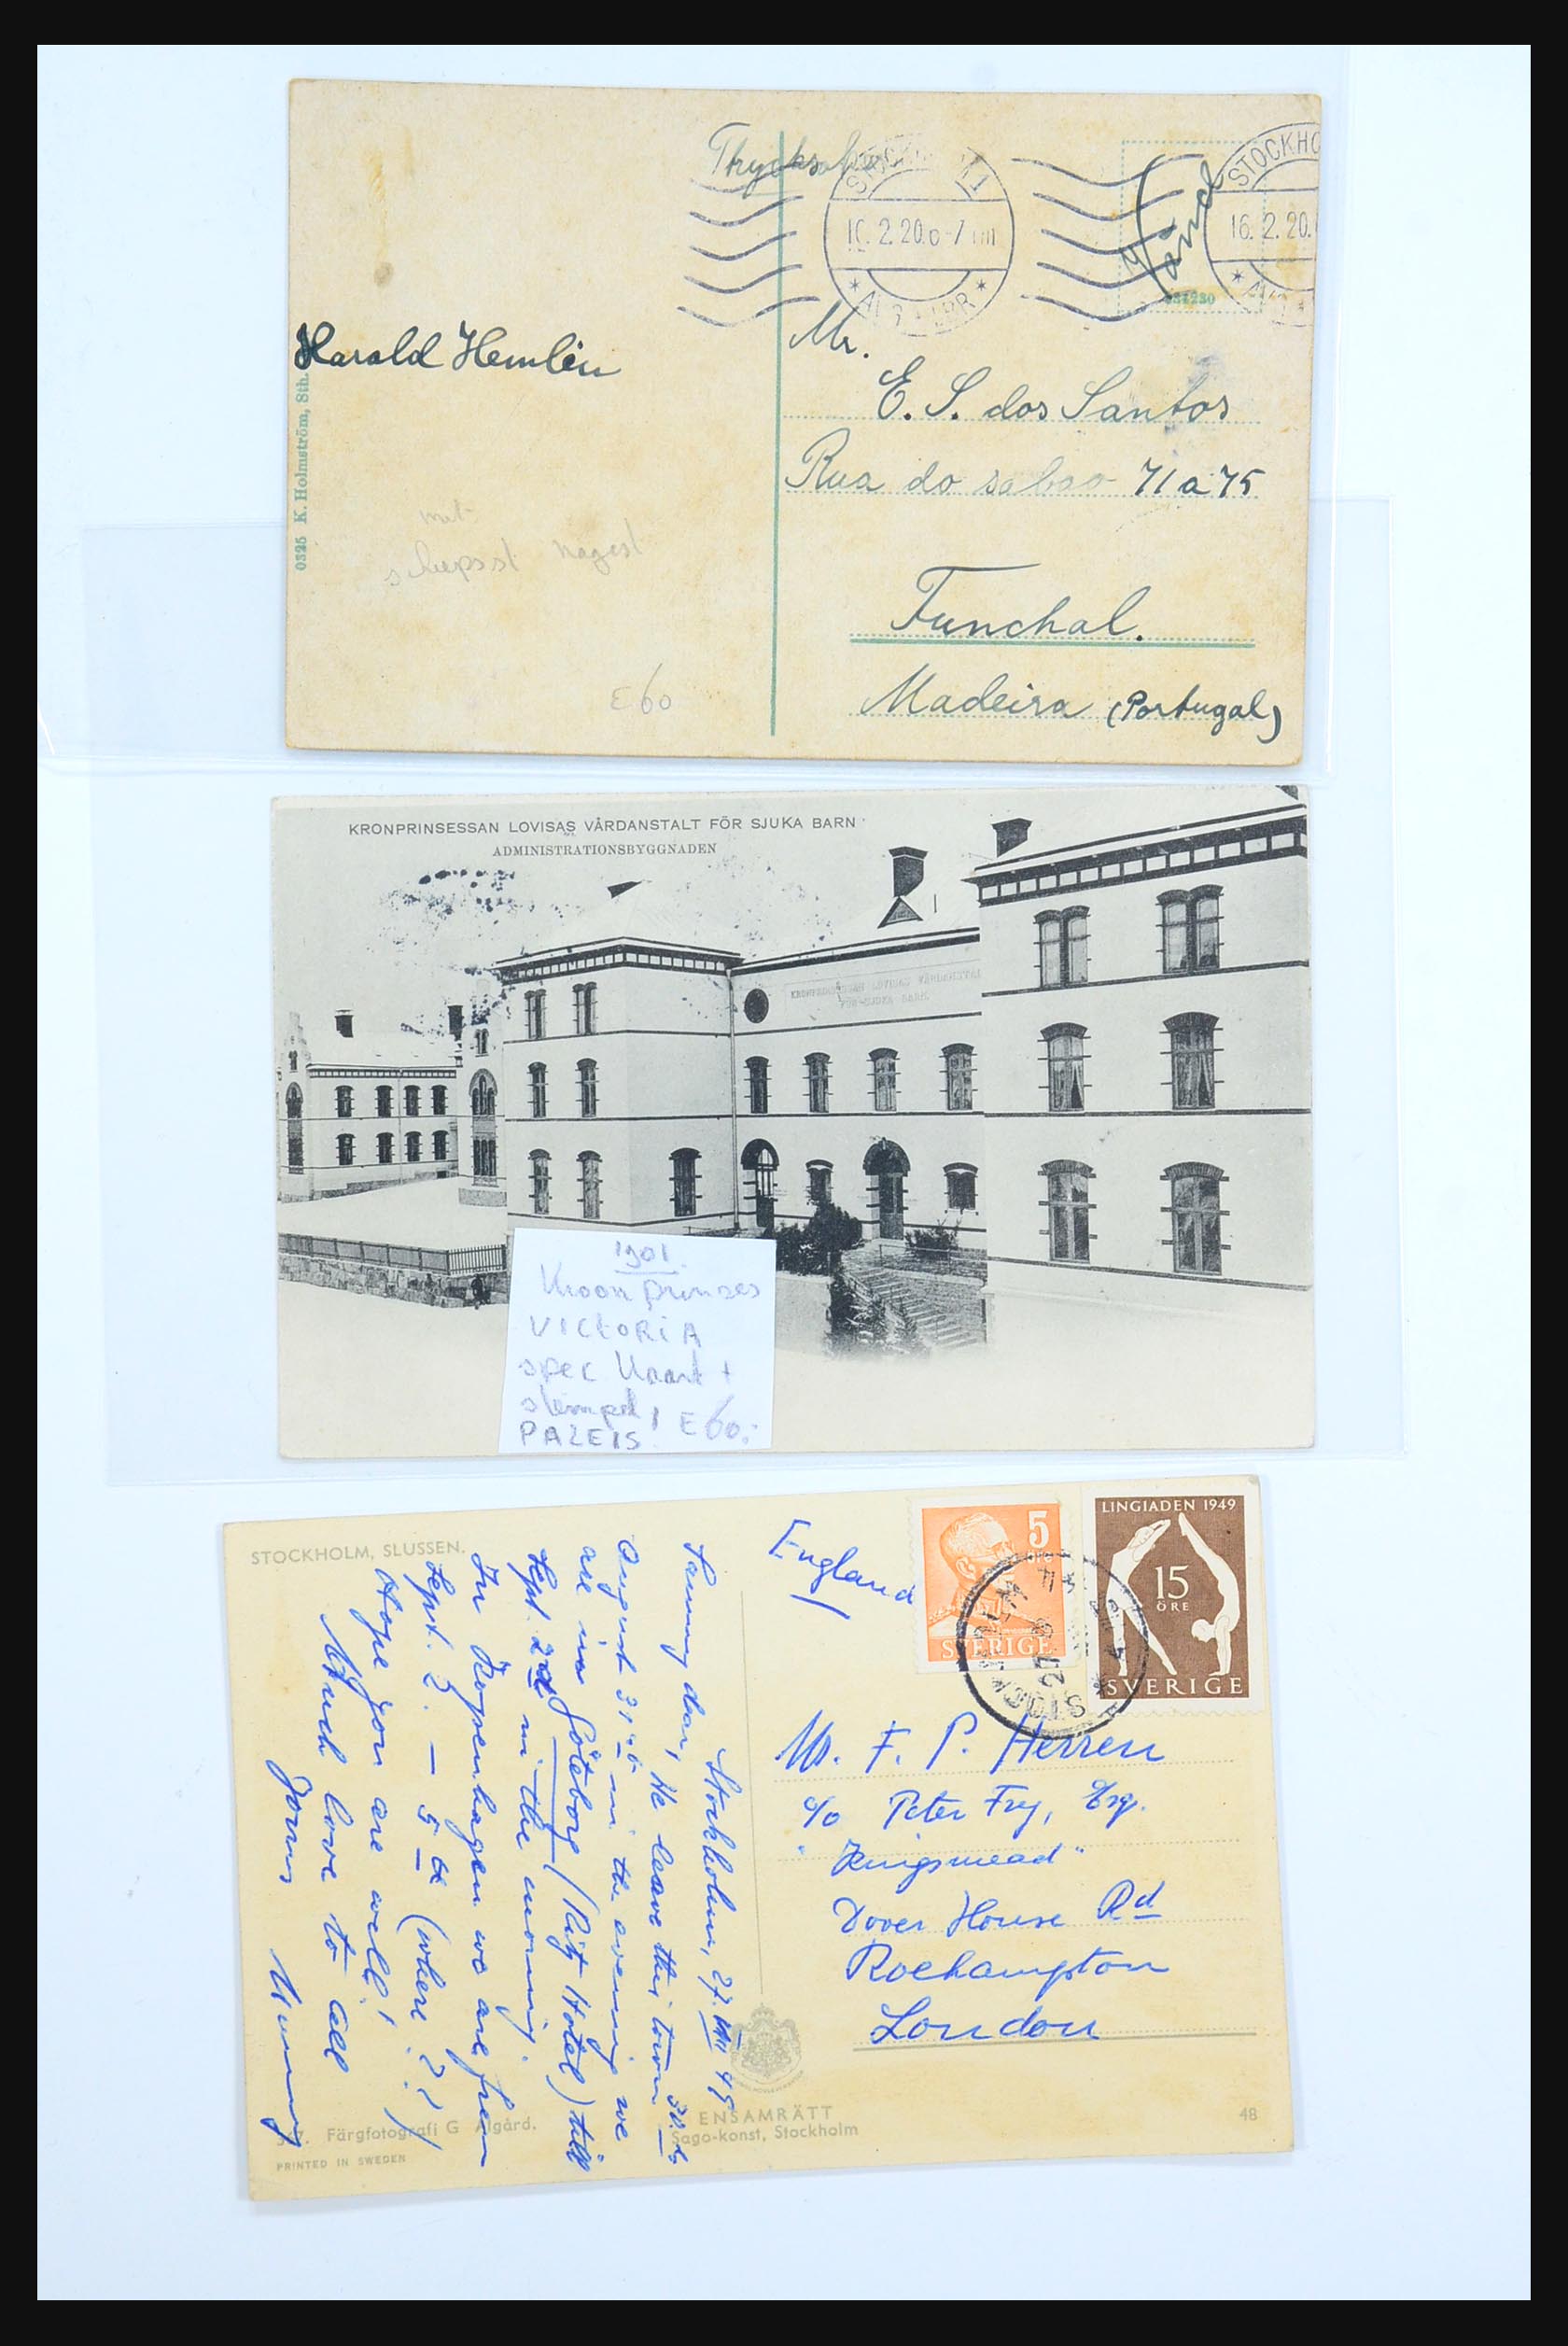 STOCKHOLM 1
16.2.20.6-7 EM
STOCKHO
16.2.20.
Vänd
037230
Harald Hemlén
0325 K. Holmström, Sth.
Mr.
E. S. dos Santos
Rua do sabao 71 a 75
Funchal.
Madeira (Portugal)
met
scheepsst
E60
KRONPRINSESSAN LOVISAS VÅRDANSTALT FÖR SJUKA BARN
ADMINISTRATIONSBYGGNADEN
KRONPRINSESSAN LOVISAS VÅRDANSTALT
FÖR SJUKA BARN
1901.
Kroonprinses
VICTORIA
spec Kaart +
stempel!
PALEIS! E60.-
STOCKHOLM, SLUSSEN.
Stockholm, 27. VIII 49
Sunny dear, We leave this town 30.
August 31 in the evening we
are in Göteborg (Ritz Hotel) till
Sept. 2nd in the morning.
In Kopenhagen we are from
Sept. 2. – 5th (where??)
Hope you are well!
Much love to all
Yours
Mummy
England
5
ÖRE
SVERIGE
LINGIADEN 1949
15
ÖRE
SVERIGE
STOCKHOLM
F. P. Herren
c/o Peter Fry, Esq.
"Kingsmead"
Dover House Rd
Roehampton
London
Färgfotografi G Ålgård.
PRINTED IN SWEDEN
ENSAMRÄTT
Sago-konst, Stockholm
48